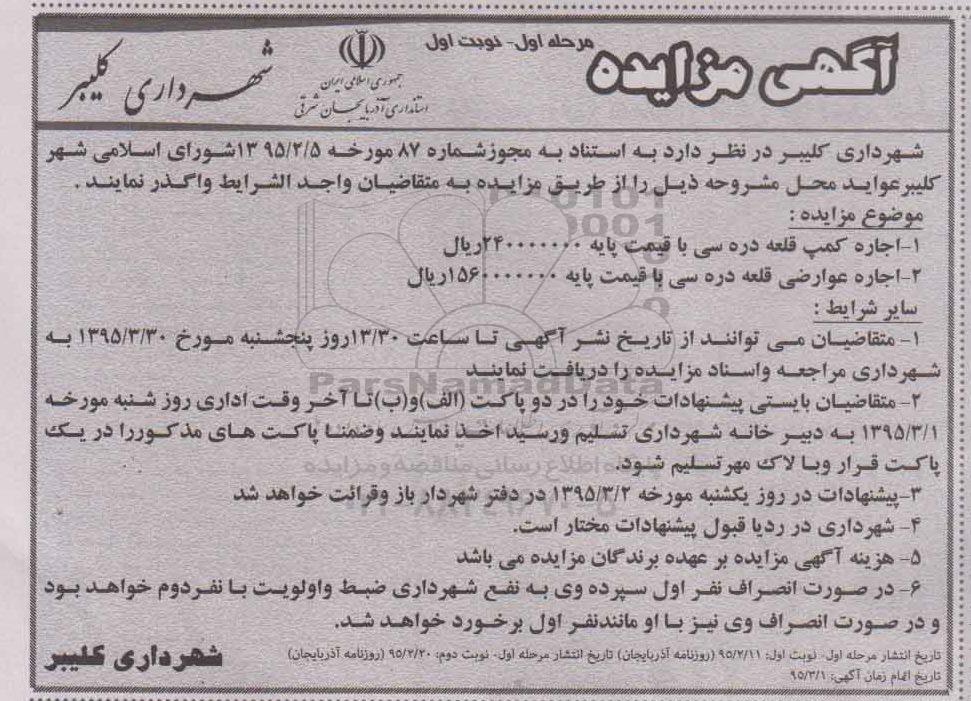 آگهی مزایده
مرحله اول- نوبت اول
جمهوری اسلامی ایران
استانداری آذربایجان شرقی
شهرداری کلیبر
شهرداری کلیبر در نظر دارد به استناد به مجوزشماره ۸۷ مورخه ۱۳۹۵/۲/۵شورای اسلامی شهر
کلیبرعواید محل مشروحه ذیل را از طریق مزایده به متقاضیان واجد الشرایط واگذر نمایند .
موضوع مزایده :
۱-اجاره کمپ قلعه دره سی با قیمت پایه ۲۴۰۰۰۰۰۰۰ریال
۲-اجاره عوارضی قلعه دره سی با قیمت پایه ۱۵۶۰۰۰۰۰۰۰ریال
سایر شرایط :
۱- متقاضیان می توانند از تاریخ نشر آگهی تا ساعت ۱۳/۳۰روز پنجشنبه مورخ ۱۳۹۵/۳/۳۰ به
شهرداری مراجعه واسناد مزایده را دریافت نمایند
۲- متقاضیان بایستی پیشنهادات خود را در دو پاکت (الف)و(ب)تا آخر وقت اداری روز شنبه مورخه
۱۳۹۵/۳/۱ به دبیر خانه شهرداری تسلیم ورسید اخذ نمایند وضمنا پاکت های مذکوررا در یک
پاکت قرار وبا لاک مهرتسلیم شود.
۳-پیشنهادات در روز یکشنبه مورخه ۱۳۹۵/۳/۲ در دفتر شهردار باز وقرائت خواهد شد
۴- شهرداری در ردیا قبول پیشنهادات مختار است.
۵- هزینه آگهی مزایده بر عهده برندگان مزایده می باشد
۶- در صورت انصراف نفر اول سپرده وی به نفع شهرداری ضبط واولویت با نفردوم خواهد بود
و در صورت انصراف وی نیز با او مانندنفر اول برخورد خواهد شد.
تاریخ انتشار مرحله اول- نوبت اول: ۹۵/۲/۱۱ (روزنامه آذربایجان) تاریخ انتشار مرحله اول- نوبت دوم: ۹۵/۲/۲۰ (روزنامه آذربایجان)
تاریخ اتمام زمان آگهی: ۹۵/۳/۱
شهرداری کلیبر
ParsNamadData